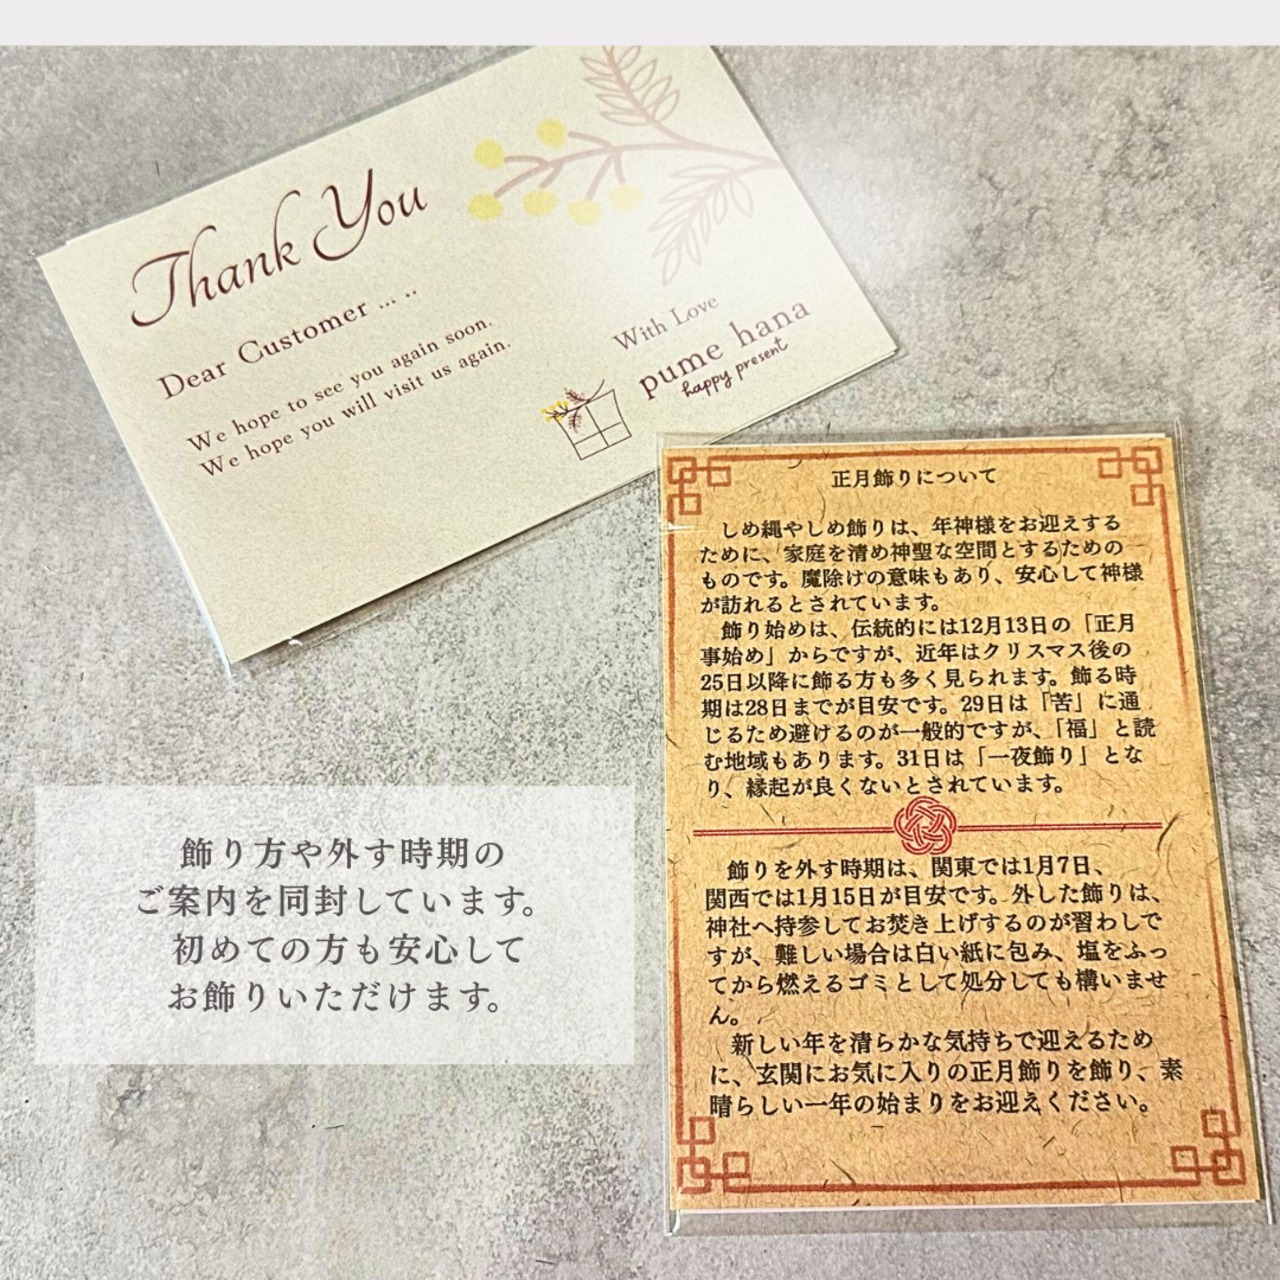 Thank You
Dear Customer ... ..
We hope to see you again soon.
We hope you will visit us again.
With Love
pume hana
happy present
正月飾りについて
しめ縄やしめ飾りは、年神様をお迎えする
ために、家庭を清め神聖な空間とするための
ものです。魔除けの意味もあり、安心して神様
が訪れるとされています。
飾り始めは、伝統的には12月13日の「正月
事始め」からですが、近年はクリスマス後の
25日以降に飾る方も多く見られます。飾る時
期は28日までが目安です。29日は「苦」に通
じるため避けるのが一般的ですが、「福」と読
む地域もあります。31日は「一夜飾り」とな
り、縁起が良くないとされています。
飾りを外す時期は、関東では1月7日、
関西では1月15日が目安です。外した飾りは、
神社へ持参してお焚き上げするのが習わしで
すが、難しい場合は白い紙に包み、塩をふっ
てから燃えるゴミとして処分しても構いませ
ん。
新しい年を清らかな気持ちで迎えるため
に、玄関にお気に入りの正月飾りを飾り、素
晴らしい一年の始まりをお迎えください。
飾り方や外す時期の
ご案内を同封しています。
初めての方も安心して
お飾りいただけます。